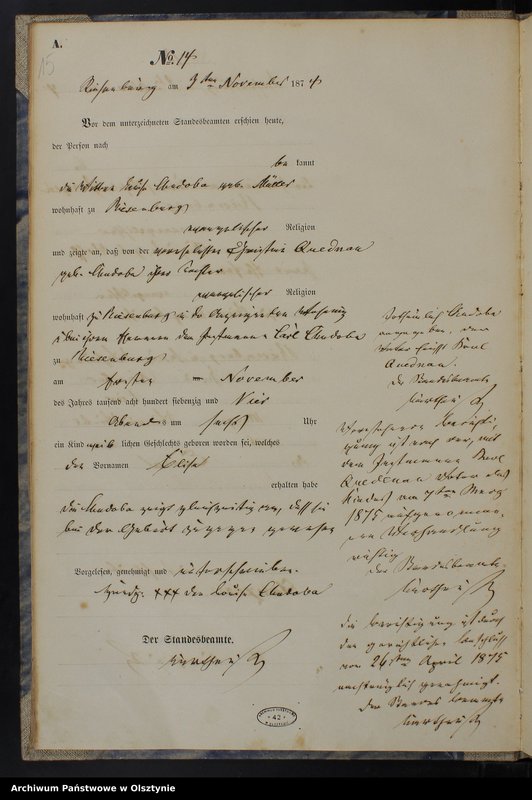 A.
15
No. 14
Riesenburg am 3ten November 1874
Vor dem unterzeichneten Standesbeamten erschien heute,
der Person nach
be kannt
die Wittwe Louise Chedoba geb. Müller
wohnhaft zu Riesenburg
evangelischer Religion
und zeigte an, daß von der verehelichten Christine Quednau
geb. Chedoba ihrer Tochter
evangelischer Religion
wohnhaft zu Riesenburg in der
bei ihrem Carl Chedoba
zu Riesenburg
am Ersten November
des Jahres tausend acht hundert siebenzig und Vier
Abends um sechs Uhr
ein Kind weib lichen Geschlechts geboren worden sei, welches
den Vornamen
erhalten habe
die Chedoba zeigt gleichzeitig an, daß sie
bei der Geburt zugegen gewesen
Vorgelesen, genehmigt und unterschrieben.
Handz. XXX der Louise Chedoba
Der Standesbeamte.
Chedoba
angegeben, der
Vater heißt Karl
Quednau.
Der Standesbeamte
Vorstehende
ist nach der, mit
dem Karl
Quednau Vater des
Kindes am 7ten März
1875 aufgenommenen
Verhandlung
richtig
Der Standesbeamte.
Die Berichtigung ist durch
den gerichtlichen Beschluß
vom 26ten April 1875
nachträglich genehmigt.
Der Standesbeamte
42
Archiwum Państwowe w Olsztynie